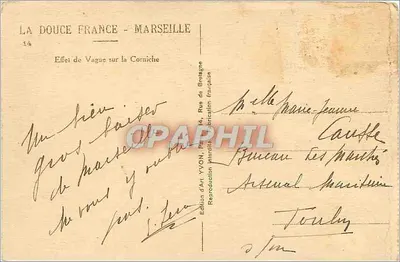 LA DOUCE FRANCE - MARSEILLE
14
Effet de Vague sur la Corniche
Un bien
gros baiser
de Marseille
Je vous y oublie
pas.
CPAPHIL
Edition d'Art YVON, Paris, 14, Rue de Bretagne
Reproduction interdite Fabrication française
Melle Marie-Jeanne
Causse
Bureau des Marchés
Arsenal Maritime
Toulon
s/mer